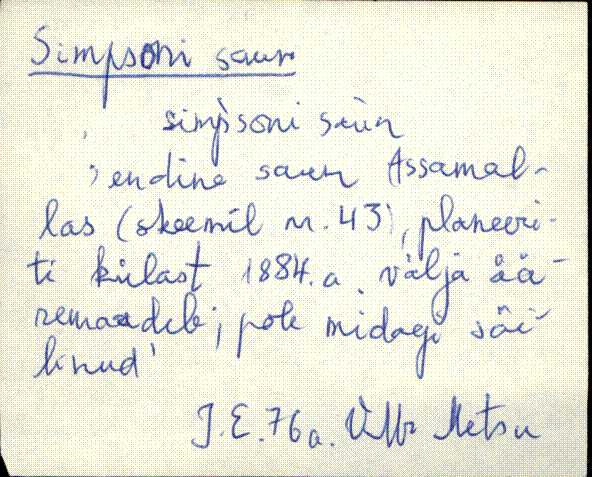 Simpsoni saun
simpsoni sàun
'endine saun Assamal-
las (skeemil nr. 43), planeeri-
ti külast 1884. a. välja ää-
remaadele; pole midagi säi-
linud'
J. E. 76 a. Metsu